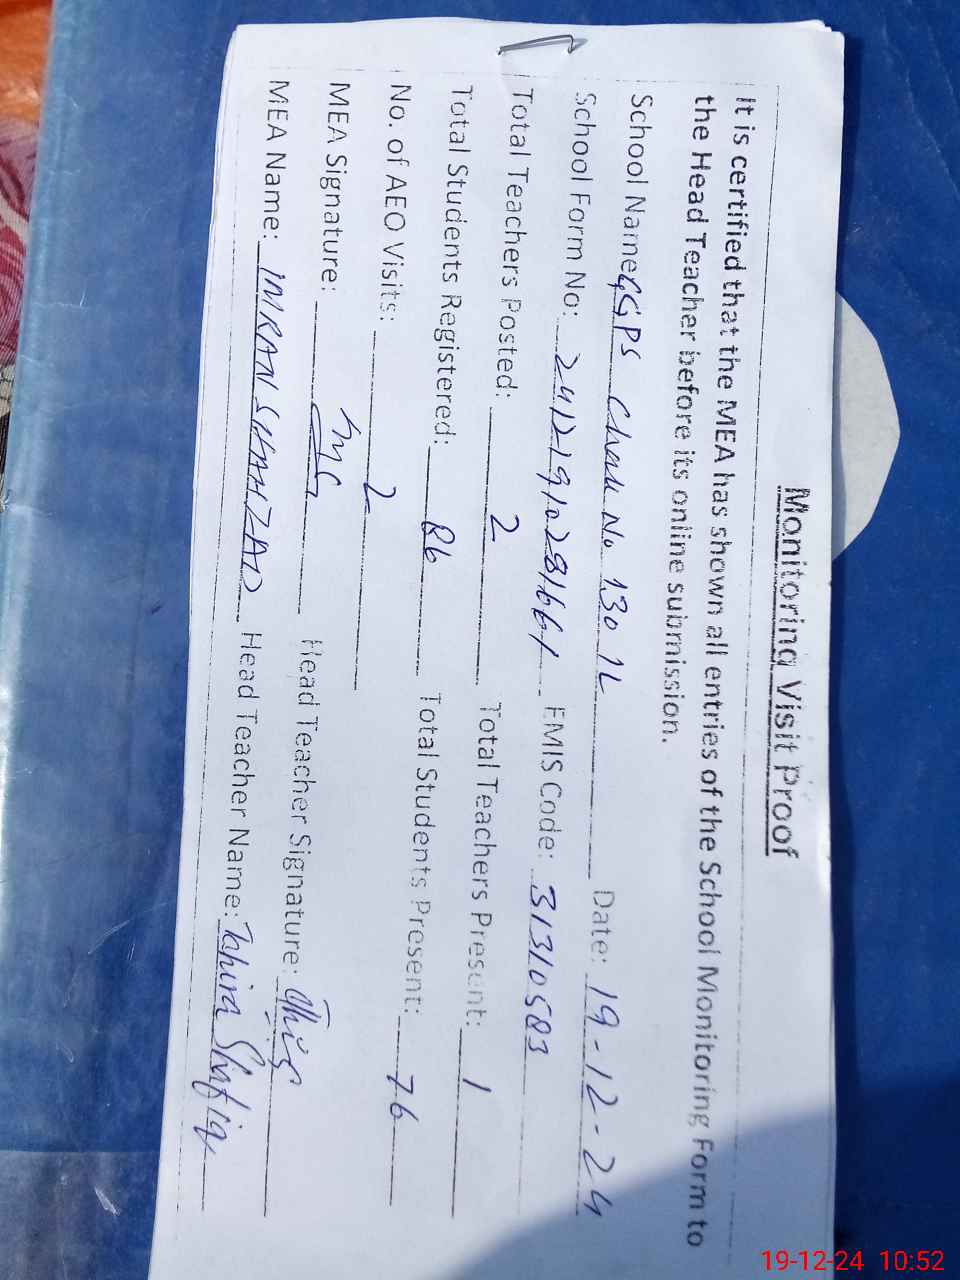 Monitoring Visit Proof
It is certified that the MEA has shown all entries of the School Monitoring Form to
the Head Teacher before its online submission.
School Name GGPS Chak No 130 1L Date: 19-12-24
School Form No: 24121910281661 EMIS Code: 31310503
Total Teachers Posted: 2 Total Teachers Present: 1
Total Students Registered: 86 Total Students Present: 76
No. of AEO Visits: 2
MEA Signature: Head Teacher Signature:
MEA Name: IMRAN SHAHZAD Head Teacher Name: Tahira Shafiq
19-12-24 10:52